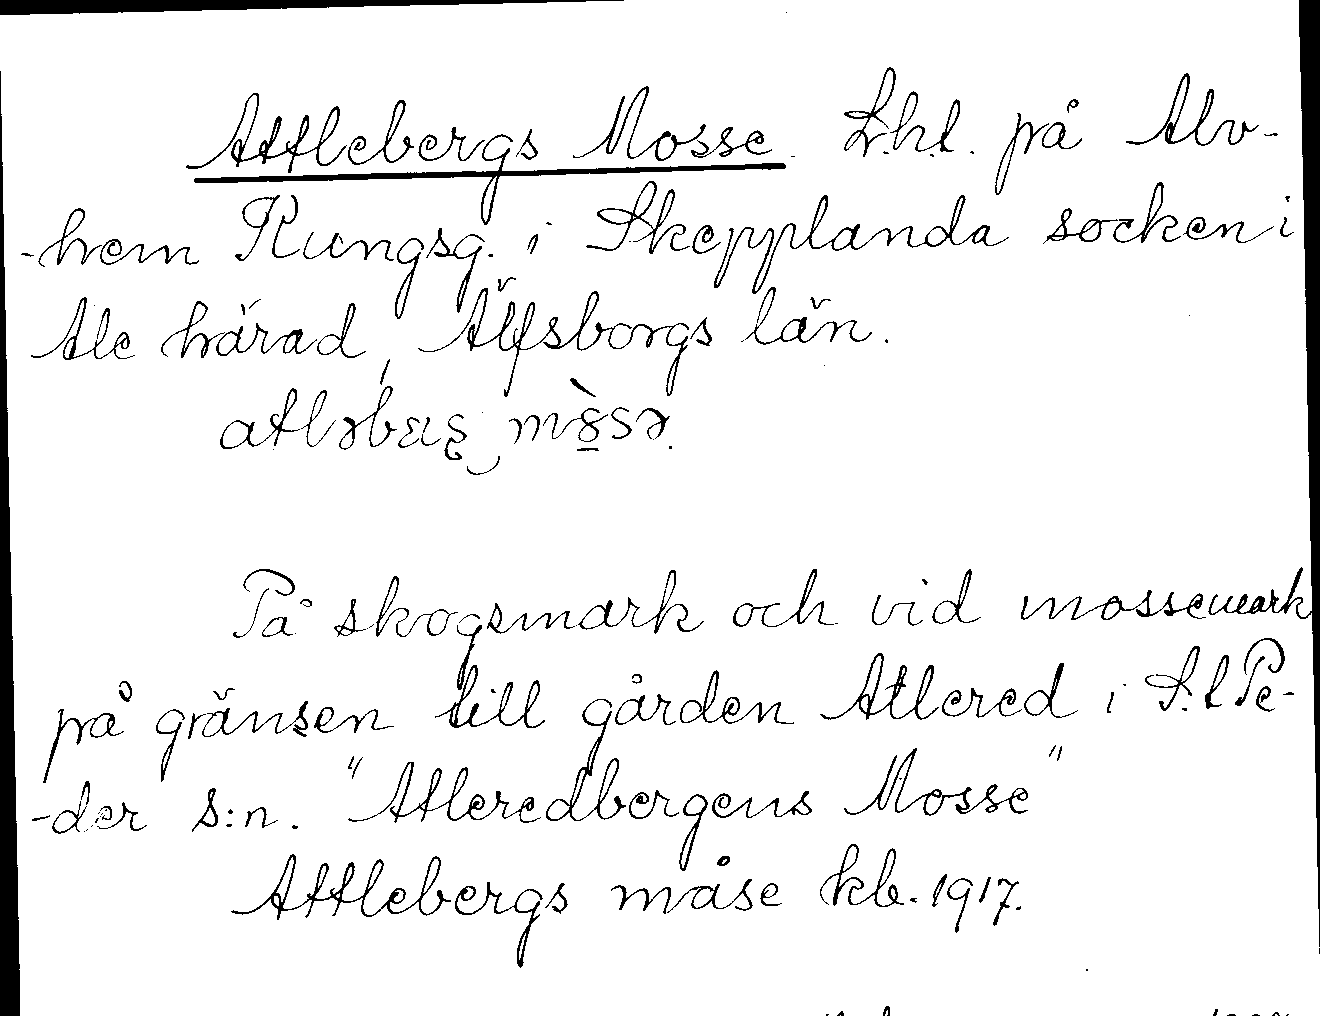 Attlebergs Mosse. L.h.t. på Alv-
-hem Kungsg. i Skepplanda socken i
Ale härad, Älfsborgs län.
atləbæʂ mòsə.
På skogsmark och vid mossemark
på gränsen till gården Atlered i S:t Pe-
-der s:n. "Atleredbergens Mosse"
Attlebergs måse kb. 1917.